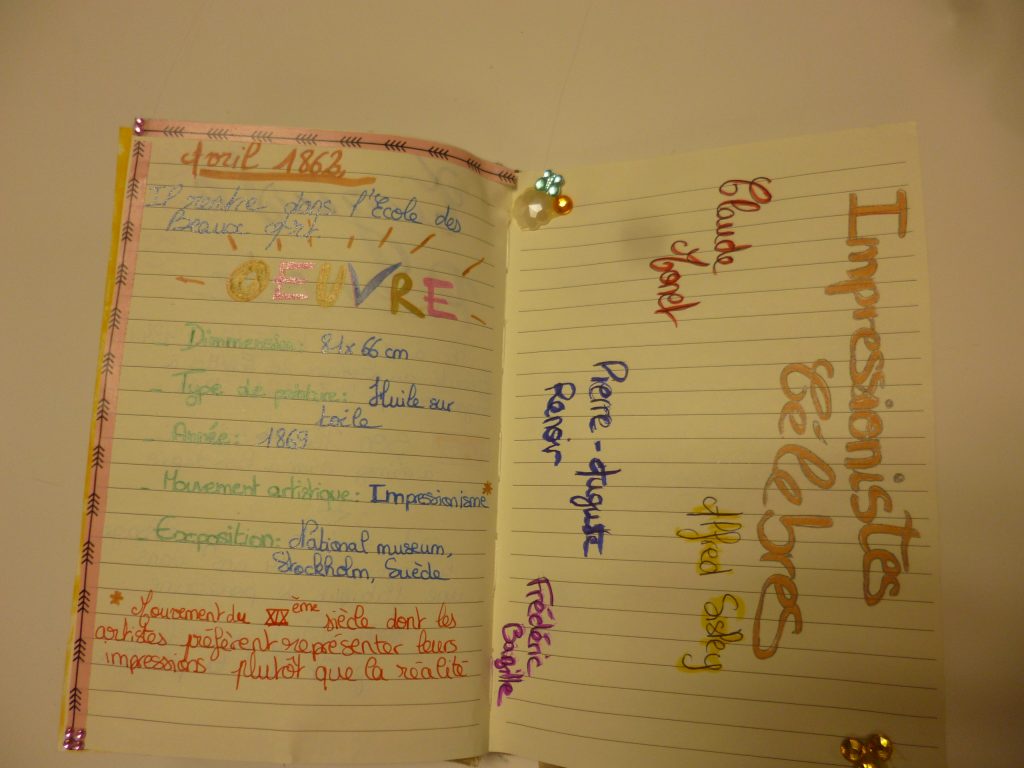 Avril 1862,
Il rentre dans l'Ecole des
Beaux Art
OEUVRE
Dimmension: 81x66 cm
- Type de peinture: Huile sur
toile
- Année: 1869
- Mouvement artistique: Impressionisme*
- Exposition: National museum,
Stockholm, Suède
* Mouvement du XIXème siècle dont les
artistes préfèrent représenter leurs
impressions plutôt que la réalité
Impressionistes
Célèbres
Claude
Monet
Pierre-Auguste
Renoir
Alfred Sisley
Frédéric
Bazille